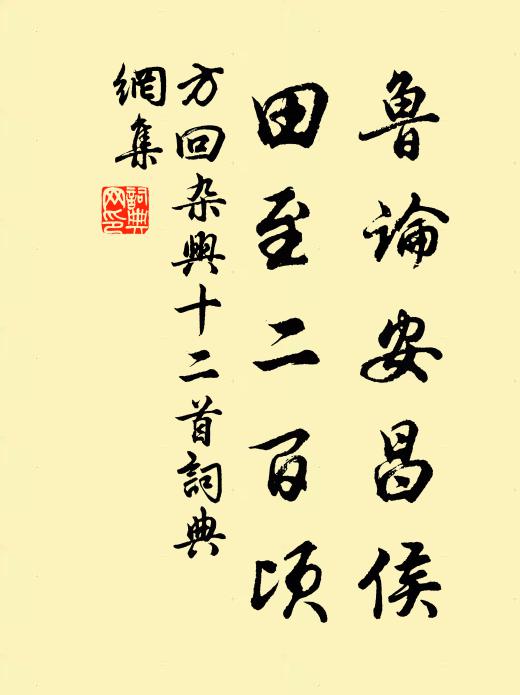 鲁论安昌侯
田至二百顷
方回杂興十二首詞典
網集
詞典網印